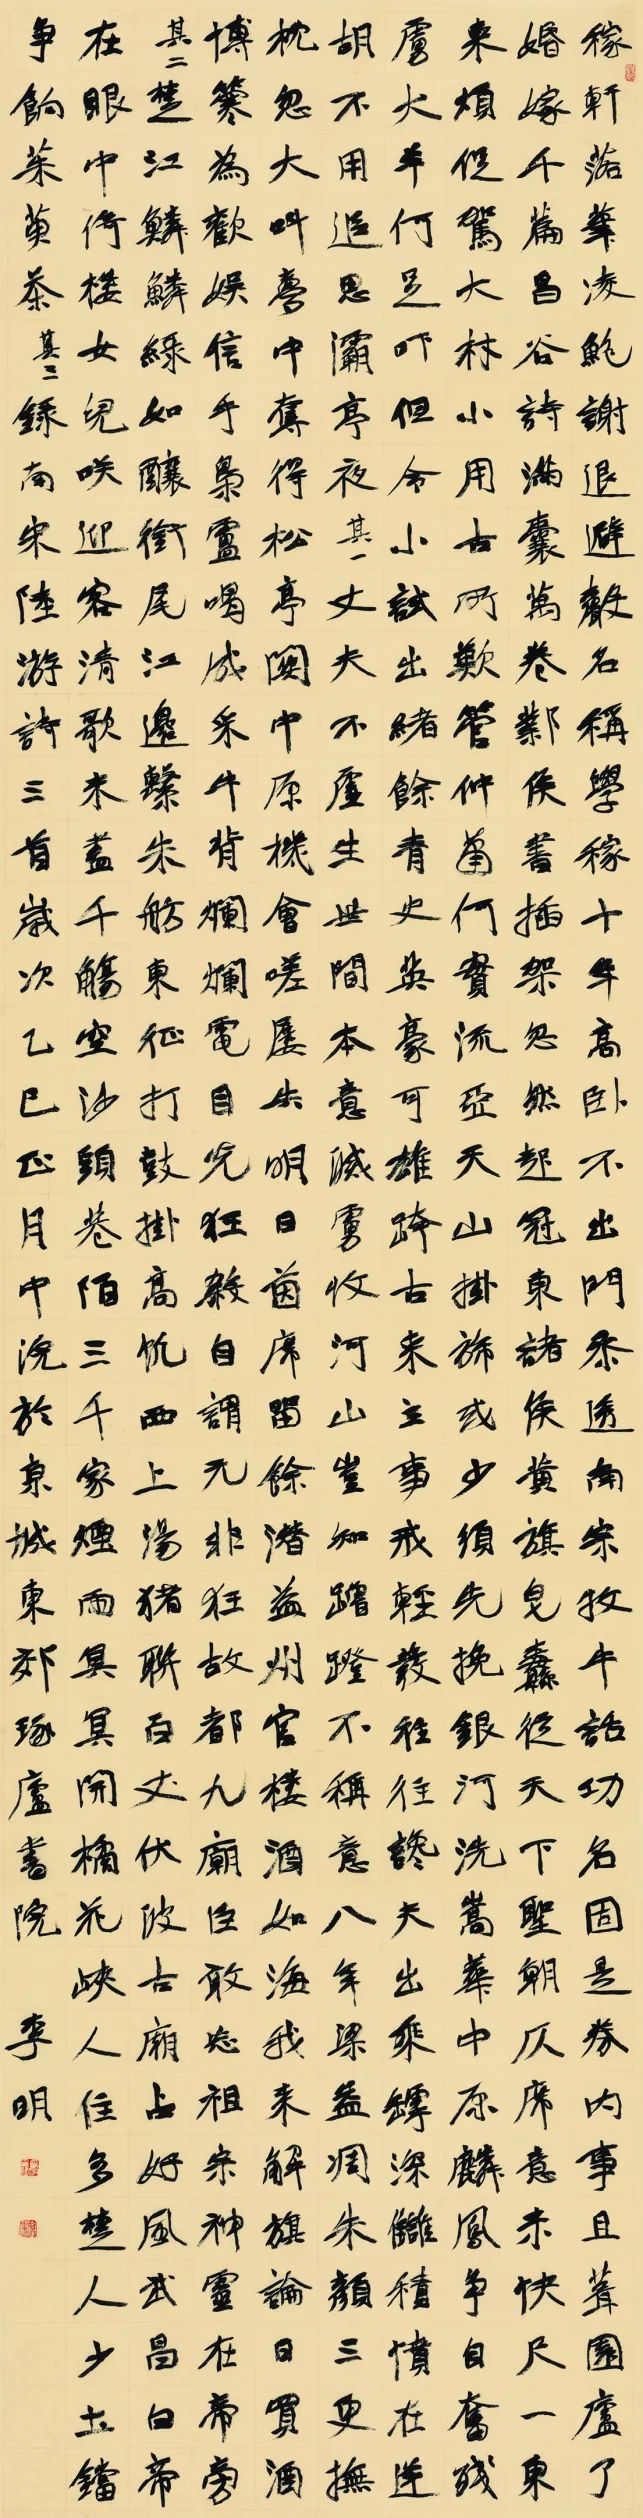 稼軒落筆凌鮑謝退避聲名稱學稼十年高卧不出門參透南宋牧牛話功名固是券內事且葺園廬了
婚嫁千篇昌谷詩滿囊萬卷鄴侯書插架忽然起冠東諸侯黃旗皂纛從天下聖朝仄席意未快尺一東
來煩促駕大材小用古所歎管仲蕭何實流亞天山掛旆或少須先挽銀河洗嵩華中原麟鳳爭自奮殘
虜犬羊何足吓但令小試出緒餘青史英豪可雄跨古來立事戒輕發往往讒夫出乘罅深讎積憤在逆
胡不用追思灞亭夜其一丈夫不虛生世間本意滅虜收河山豈知蹭蹬不稱意八年梁益凋朱顏三更撫
枕忽大叫夢中奪得松亭關中原機會嗟屢失明日茵席留餘潸益州官樓酒如海我來解旗論日買酒
博簺為歡娛信手梟盧喝成采牛背爛爛電目光狂殺自謂元非狂故都九廟臣敢忘祖宗神靈在帝旁
其二楚江鱗鱗綠如釀銜尾江邊繫朱舫東征打鼓掛高帆西上湯猪聯百丈伏波古廟占好風武昌白帝
在眼中倚樓女兒咲迎客清歌未盡千觴空沙頭巷陌三千家煙雨冥冥開橘花峽人住多楚人少土鐺
爭餉茱萸茶其三錄南宋陸游詩三首歲次乙巳正月中浣於京城東郊琢廬書院 李明